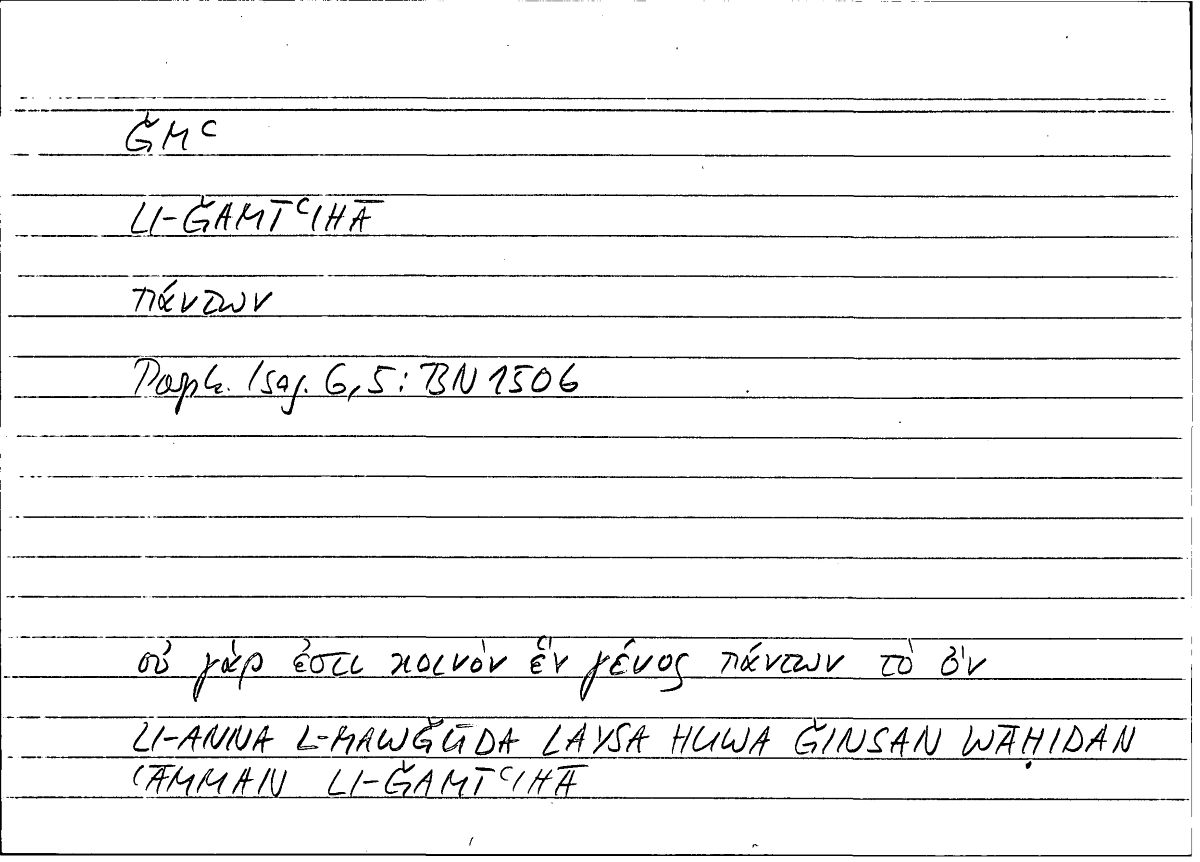 ǦMʿ
LI-ǦAMĪʿIHĀ
πάντων
Porph. Isag. 6,5: BN 1506
οὐ γάρ ἐστι κοινὸν ἓν γένος πάντων τὸ ὄν
LI-ANNA L-MAWǦŪDA LAYSA HUWA ǦINSAN WĀḤIDAN
ʿĀMMAN LI-ǦAMĪʿIHĀ